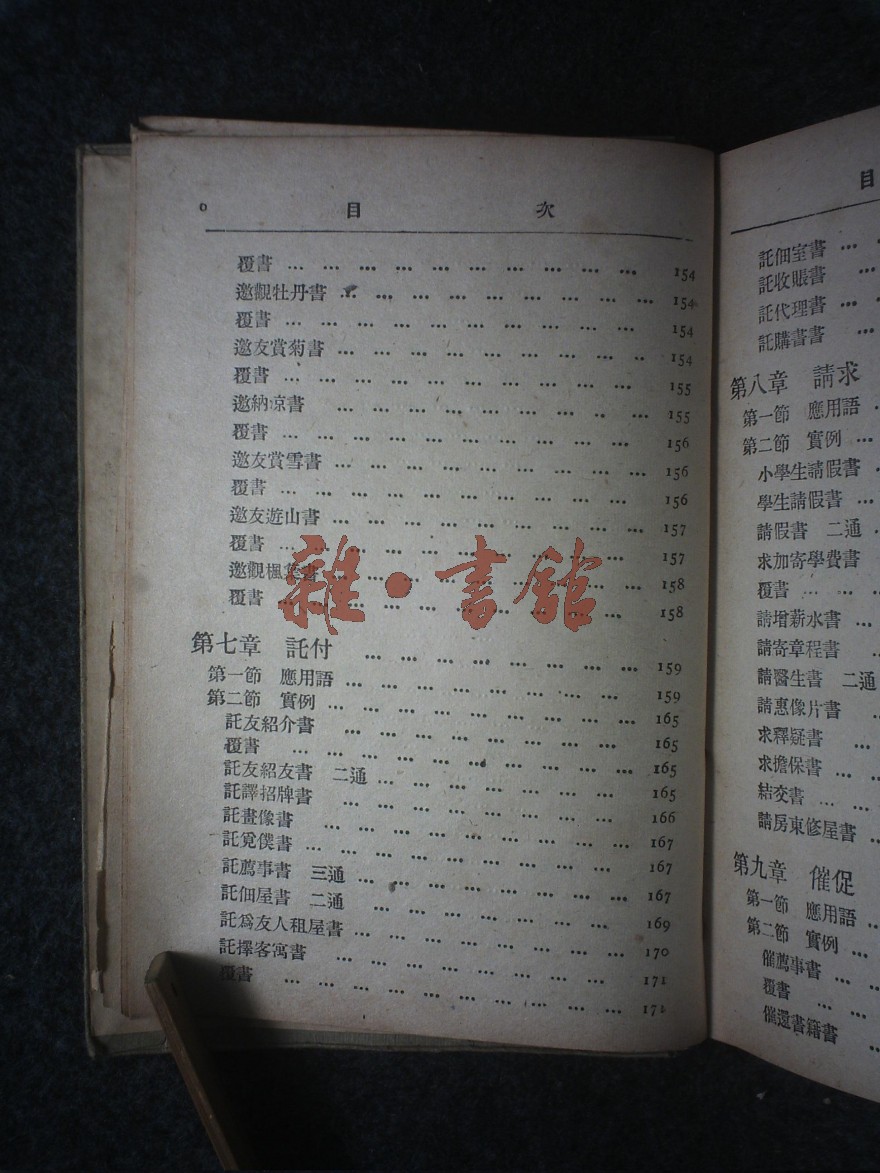 目 次
覆書 … … … … … … … … … … 154
邀觀牡丹書 … … … … … … … … … 154
覆書 … … … … … … … … … … 154
邀友賞菊書 … … … … … … … … 154
覆書 … … … … … … … … … … 155
邀納凉書 … … … … … … … … … 155
覆書 … … … … … … … … … … 156
邀友賞雪書 … … … … … … … … … 156
覆書 … … … … … … … … … … 156
邀友遊山書 … … … … … … … … … 157
覆書 … … … … … … … … … … 157
邀觀楓葉書 … … … … … … … … … 158
覆書 … … … … … … … … … … 158
雜·書館
第七章 託付 … … … … … … … … 159
第一節 應用語 … … … … … … … … 159
第二節 實例 … … … … … … … … … 165
託友紹介書 … … … … … … … … 165
覆書 … … … … … … … … … … 165
託友紹友書 二通 … … … … … … … 165
託譯招牌書 … … … … … … … … 166
託畫像書 … … … … … … … … … 167
託覓僕書 … … … … … … … … … 167
託薦事書 三通 … … … … … … … 167
託佃屋書 二通 … … … … … … … 169
託爲友人租屋書 … … … … … … … 170
託擇客寓書 … … … … … … … … 171
覆書 … … … … … … … … … …
目
託佃室書 … …
託收賬書 … …
託代理書 … …
託購書書 …
第八章 請求
第一節 應用語
第二節 實例 …
小學生請假書
學生請假書 …
請假書 二通
求加寄學費書
覆書 … …
請增薪水書 …
請寄章程書
請醫生書 二通
請惠像片書 …
求釋疑書 …
求擔保書 …
結交書 … …
請房東修屋書
第九章 催促
第一節 應用語
第二節 實例 …
催薦事書 …
覆書 …
催還書籍書